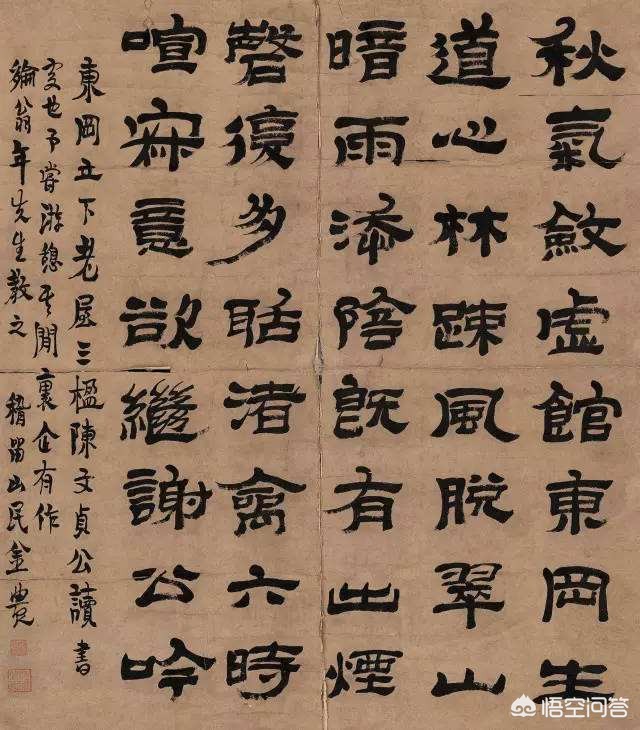 秋氣斂虛館東岡生
道心林疎風脫翠山
暗雨添陰既有出煙
磬復多聒渚禽六時
喧寐意欲繼謝公吟
東岡丘下老屋三楹陳文貞公讀書
處也予嘗游憩其間裏企有作
綸翁年先生教之 稽留山民金農
悟空问答